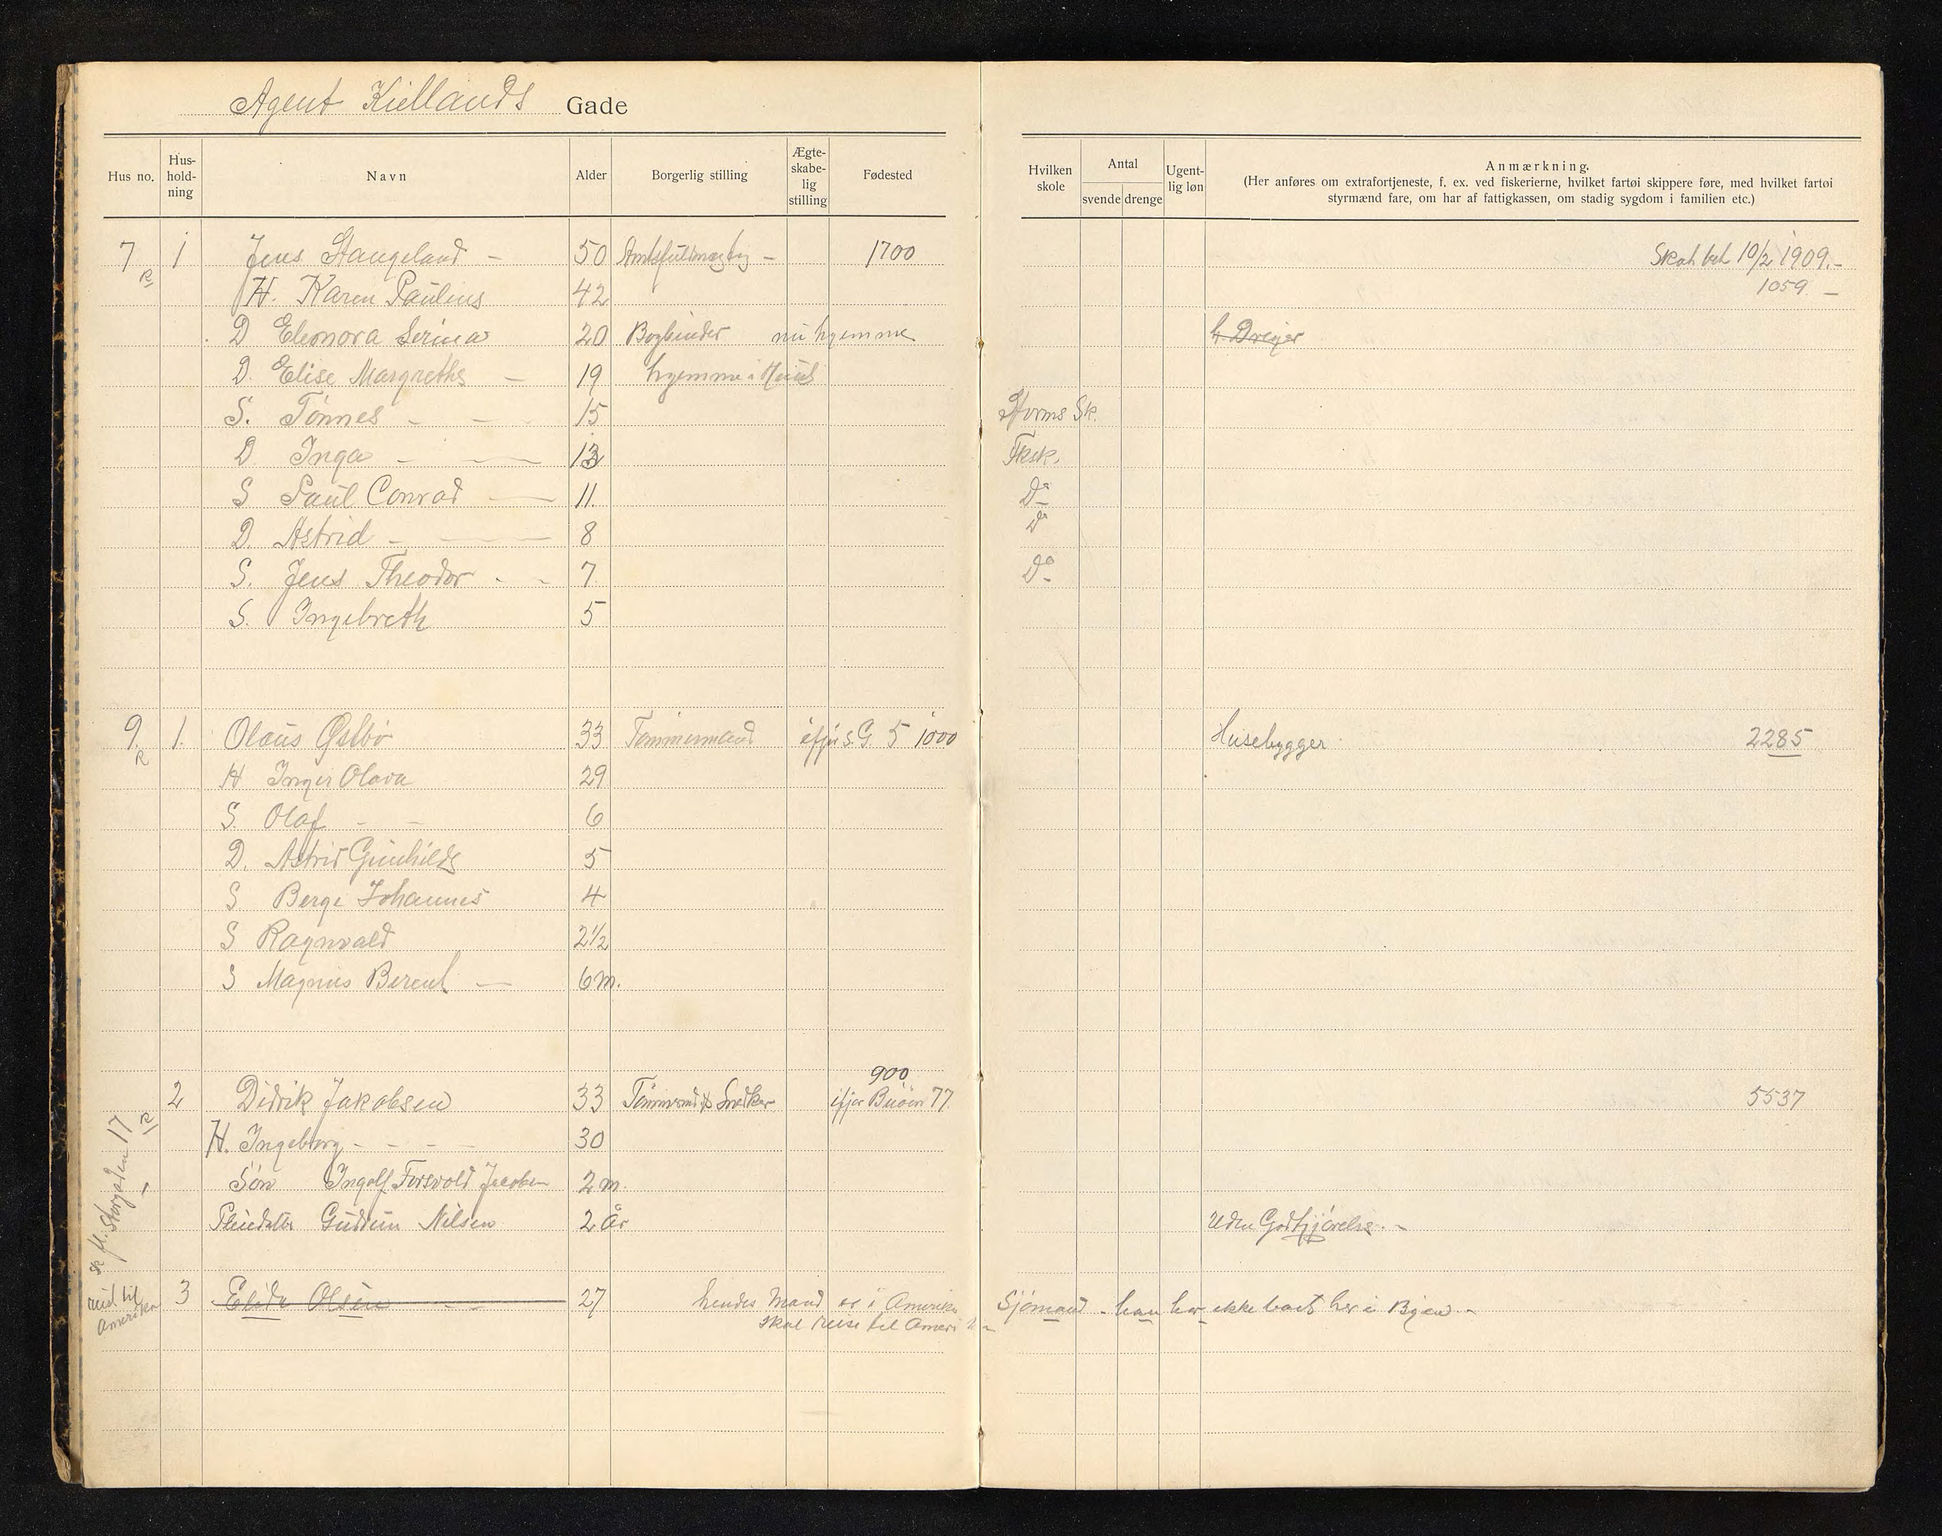 Agent Kiellands Gade
Hus no. Hus-hold-ning Navn Alder Borgerlig stilling Ægte-skabe-lig stilling Fødested Hvilken skole Antal svende drenge Ugent-lig løn Anmærkning.
(Her anføres om extrafortjeneste, f. ex. ved fiskerierne, hvilket fartøi skippere føre, med hvilket fartøi
styrmænd fare, om har af fattigkassen, om stadig sygdom i familien etc.)
7 R 1 Jens Stangeland - 50 Amtsfuldmægtig - 1700 Skat bet 10/2 1909.-
H. Karen Pauline 42 1059 -
D Eleonora Serina 20 Bogbinder nu hjemme h Dreyer
D. Elise Margrethe - 19 hjemme i Huset
S. Tønnes - - 15 Storms Sk.
D. Inga - - 13 Fksk.
S Paul Conrad - 11. Do
D. Astrid - - 8 Do
S. Jens Theodor - - 7 Do
S. Ingebreth 5
9. R 1. Olaus Østbø 33 Tømmermand ifjor S.G. 5 1000 Husebygger 2285
H Inger Olava 29
S. Olaf - - 6
D. Astrid Gunhilde 5
S Berge Johannes 4
S Ragnvald 2 1/2
S Magnus Berent - 6 m.
900
2 Didrik Jakobsen 33 Tømmermd & Snedker ifjor Buøen 77 5537
R
H. Ingeborg - - - - 30
Søn Ingolf Torsvold Jacobsen 2 m.
Pleiedatter Gudrun Nilsen 2 År Uden Godtgjørelse. -
fl. Storgaden 17
reist til Amerika
3 Elida Olsen - - 27 hendes Mand er i Amerika Sjømand - han har ikke boet her i Byen. -
skal reise til Amerika -